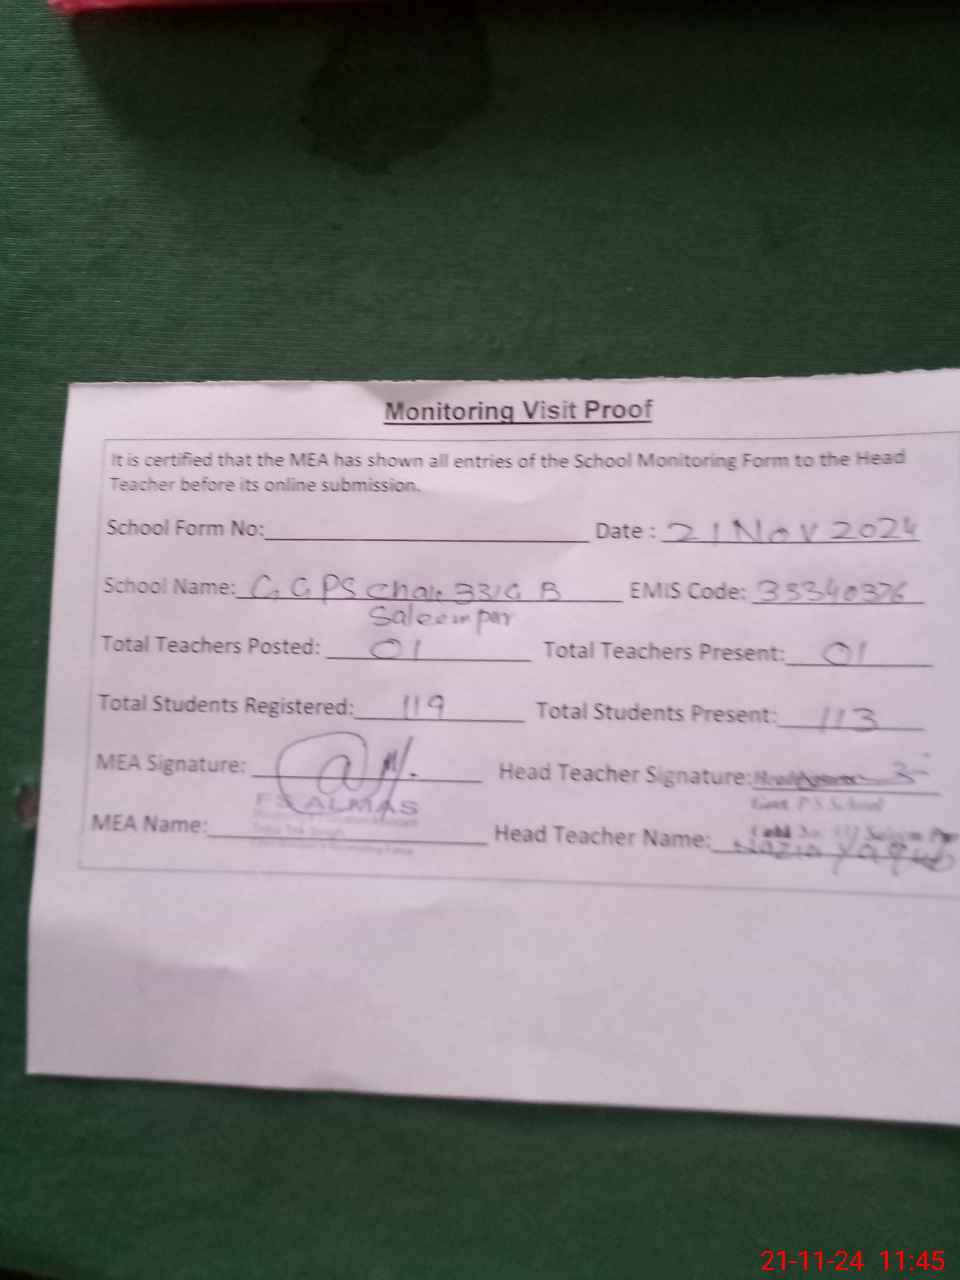 Monitoring Visit Proof
It is certified that the MEA has shown all entries of the School Monitoring Form to the Head
Teacher before its online submission.
School Form No: Date : 21 Nov 2024
School Name: G G PS Chak 331 G B EMIS Code: 35340376
Saleempur
Total Teachers Posted: 01 Total Teachers Present: 01
Total Students Registered: 119 Total Students Present: 113
MEA Signature: Head Teacher Signature:
ALMAS Govt. P S School
MEA Name: Head Teacher Name: Nazia Yaqub
Saleem Pur
21-11-24 11:45